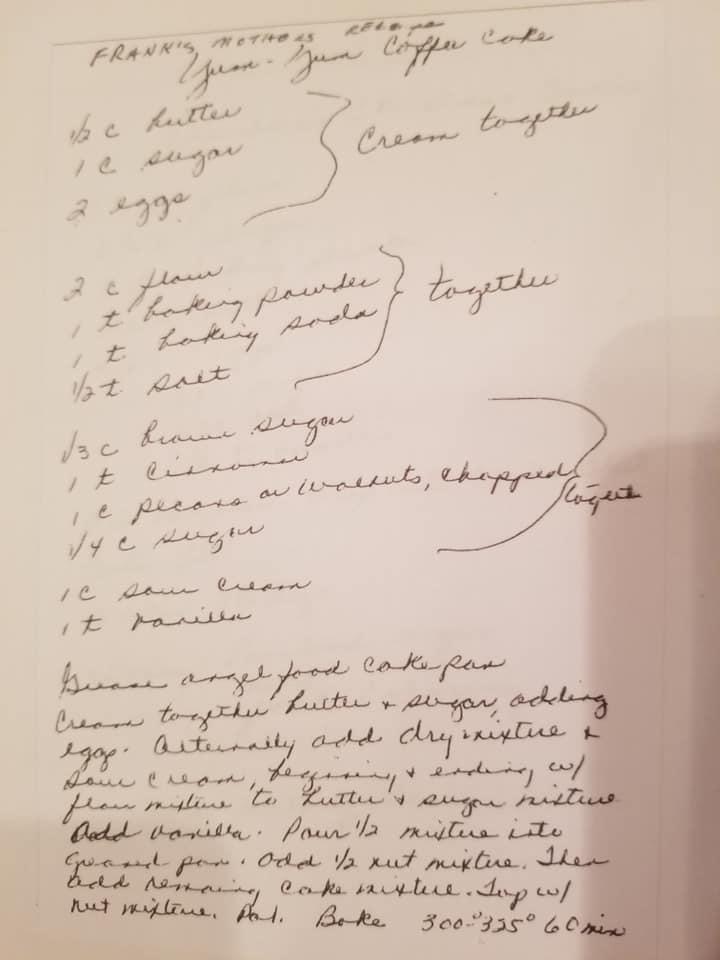 FRANK'S MOTHERS RECIPE
Yum-Yum Coffee Cake
1/2 c butter
1 c sugar
2 eggs
Cream together
2 c flour
1 t baking powder
1 t baking soda
1/2 t salt
together
1/3 c brown sugar
1 t cinnamon
1 c pecans or walnuts, chopped
1/4 c sugar
1 c sour cream
1 t vanilla
Grease angel food cake pan
Cream together butter & sugar, adding
eggs. Alternately add dry mixture &
sour cream, beginning & ending w/
flour mixture to butter & sugar mixture
Add vanilla. Pour 1/2 mixture into
greased pan. Add 1/2 nut mixture. Then
add remaing cake mixture. Top w/
nut mixture. Bake 300°-325° 60 min